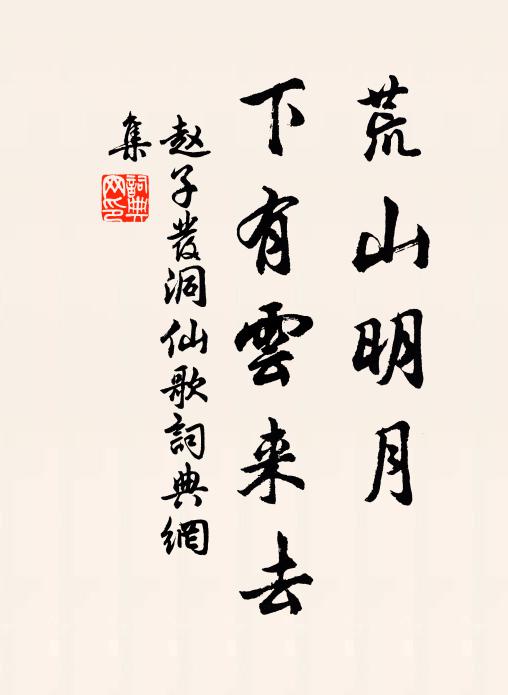 荒山明月
下有雲来去
赵子發洞仙歌詞典網
集
詞典
网印